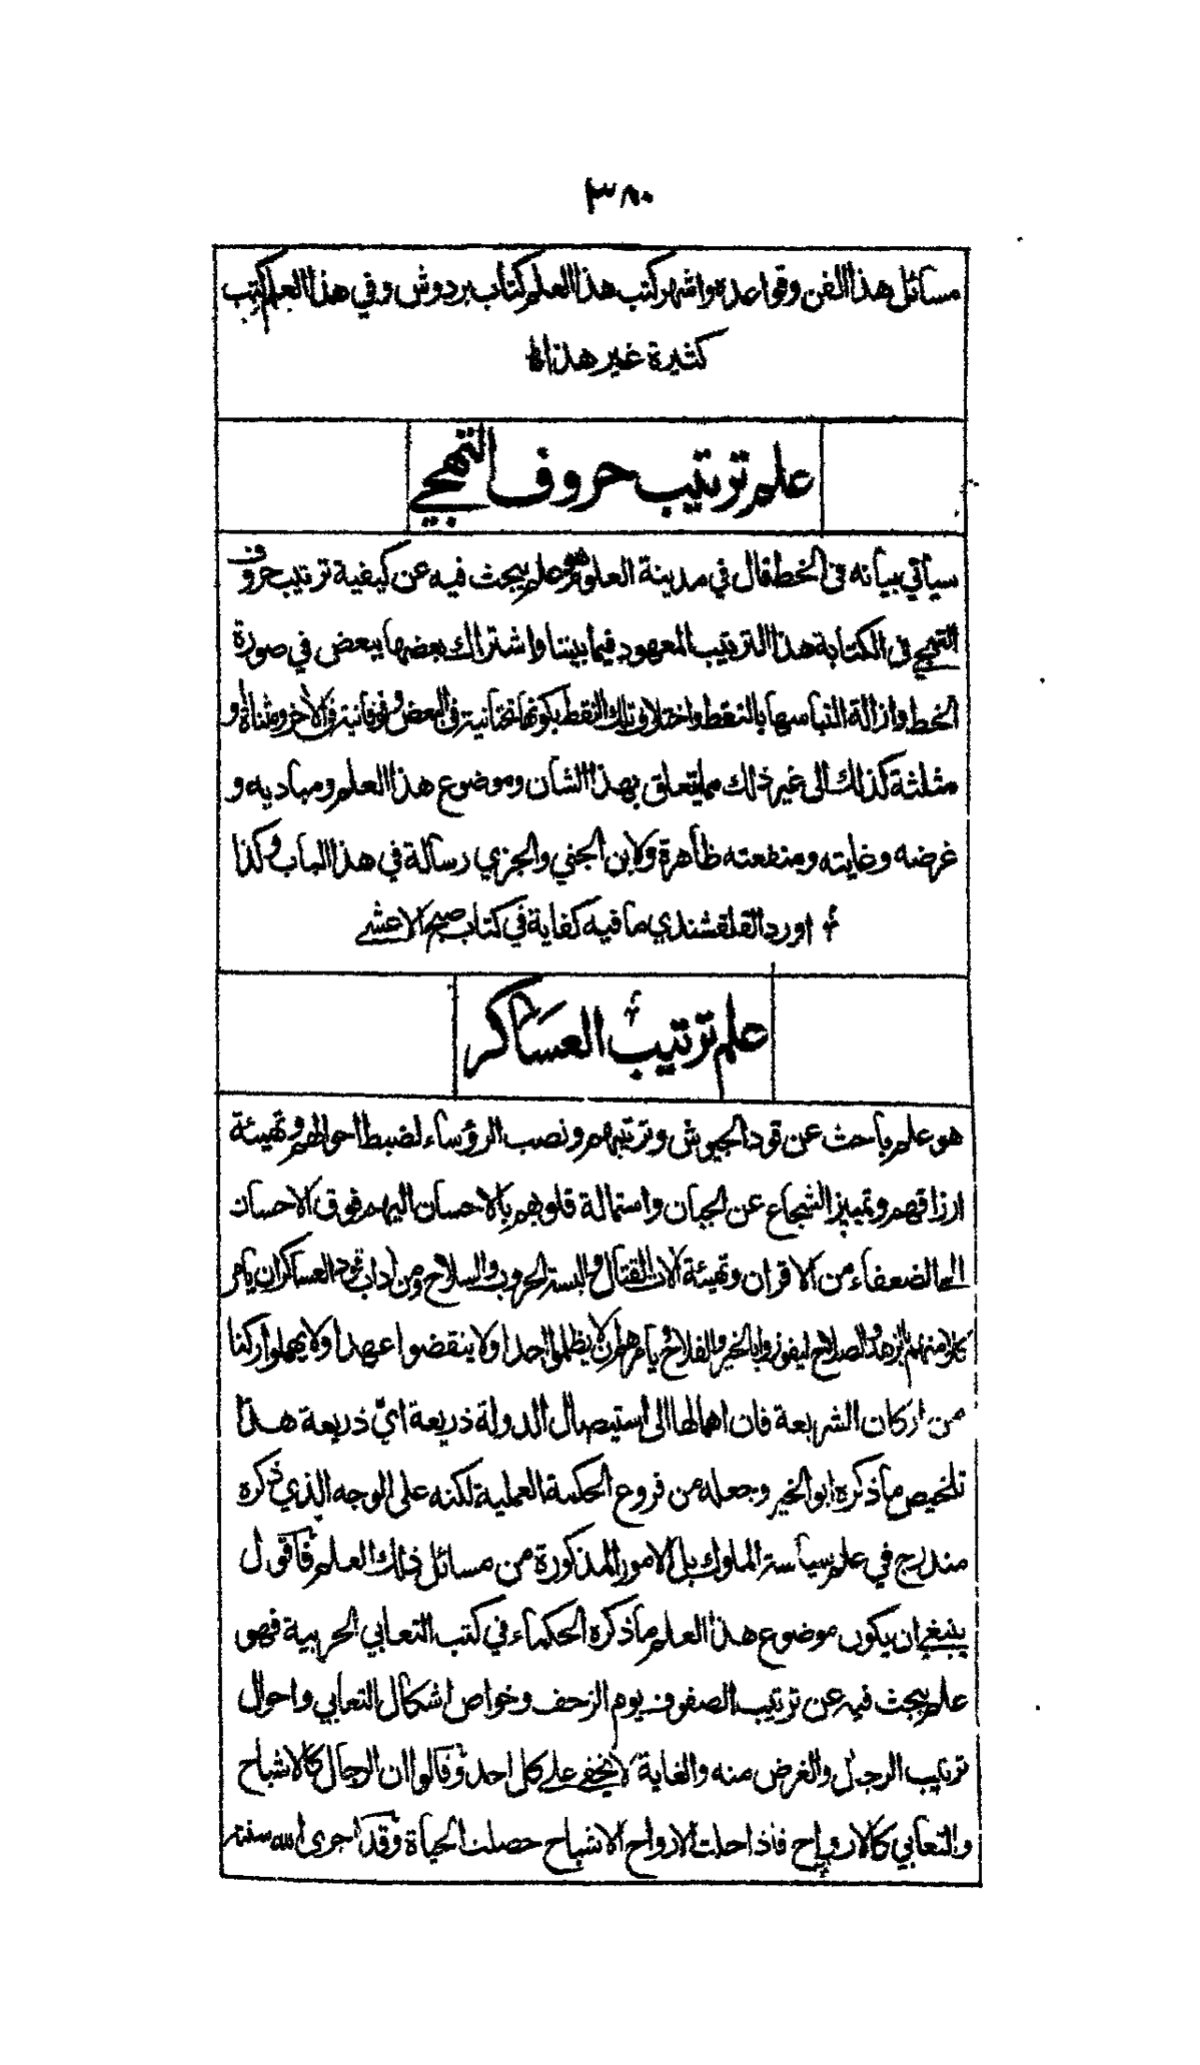 ٣٨٠
مسائل هذا الفن وقواعده واشهر كتب هذا العلم كتاب بردوش وفي هذا العلم كتب
كثيرة غير هذا
علم ترتيب حروف التهجي
سيأتي بيانه في الخط قال في مدينة العلوم هو علم يبحث فيه عن كيفية ترتيب حروف
التهجي في الكتابة هذا الترتيب المعهود فيما بيننا واشتراك بعضها ببعض في صورة
الخط وازالة التباسها بالنقط واختلاف تلك النقط بكونها تحتانية في البعض وفوقانية في الآخر ومثناة او
مثلثة كذلك الى غير ذلك مما يتعلق بهذا الشان وموضوع هذا العلم ومباديه و
غرضه وغايته ومنفعته ظاهرة ولابن الجني والجزي رسالة في هذا الباب وكذا
اورد القلقشندي ما فيه كفاية في كتاب صبح الاعشى
علم ترتيب العساكر
هو علم باحث عن قود الجيوش وترتيبهم ونصب الرؤساء لضبط احوالهم وتهيئة
ارزاقهم وتمييز الشجاع عن الجبان واستمالة قلوبهم بالاحسان اليهم فوق الاحسان
الى الضعفاء من الاقران وتهيئة آلات القتال والبسة الحروب والسلاح ومن آداب قود العساكر ان يأمر
كلا منهم بالزهد والصلاح ليفوزوا بالخير والفلاح ويأمرهم ان لا يظلموا احدا ولا ينقضوا عهدا ولا يهملوا ركنا
من اركان الشريعة فان اهمالها الى استيصال الدولة ذريعة ايّ ذريعة هذا
تلخيص ما ذكره ابو الخير وجعله من فروع الحكمة العملية لكنه على الوجه الذي ذكره
مندرج في علم سياسة الملوك بل الامور المذكورة من مسائل ذلك العلم فاقول
ينبغي ان يكون موضوع هذا العلم ما ذكره الحكماء في كتب التعابي الحربية فهو
علم يبحث فيه عن ترتيب الصفوف يوم الزحف وخواص اشكال التعابي واحوال
ترتيب الرجال والغرض منه والغاية لا يخفى على كل احد وقالوا ان الرجال كالاشباح
والتعابي كالارواح فاذا حلت الارواح الاشباح حصلت الحياة وقد اجرى الله سنته